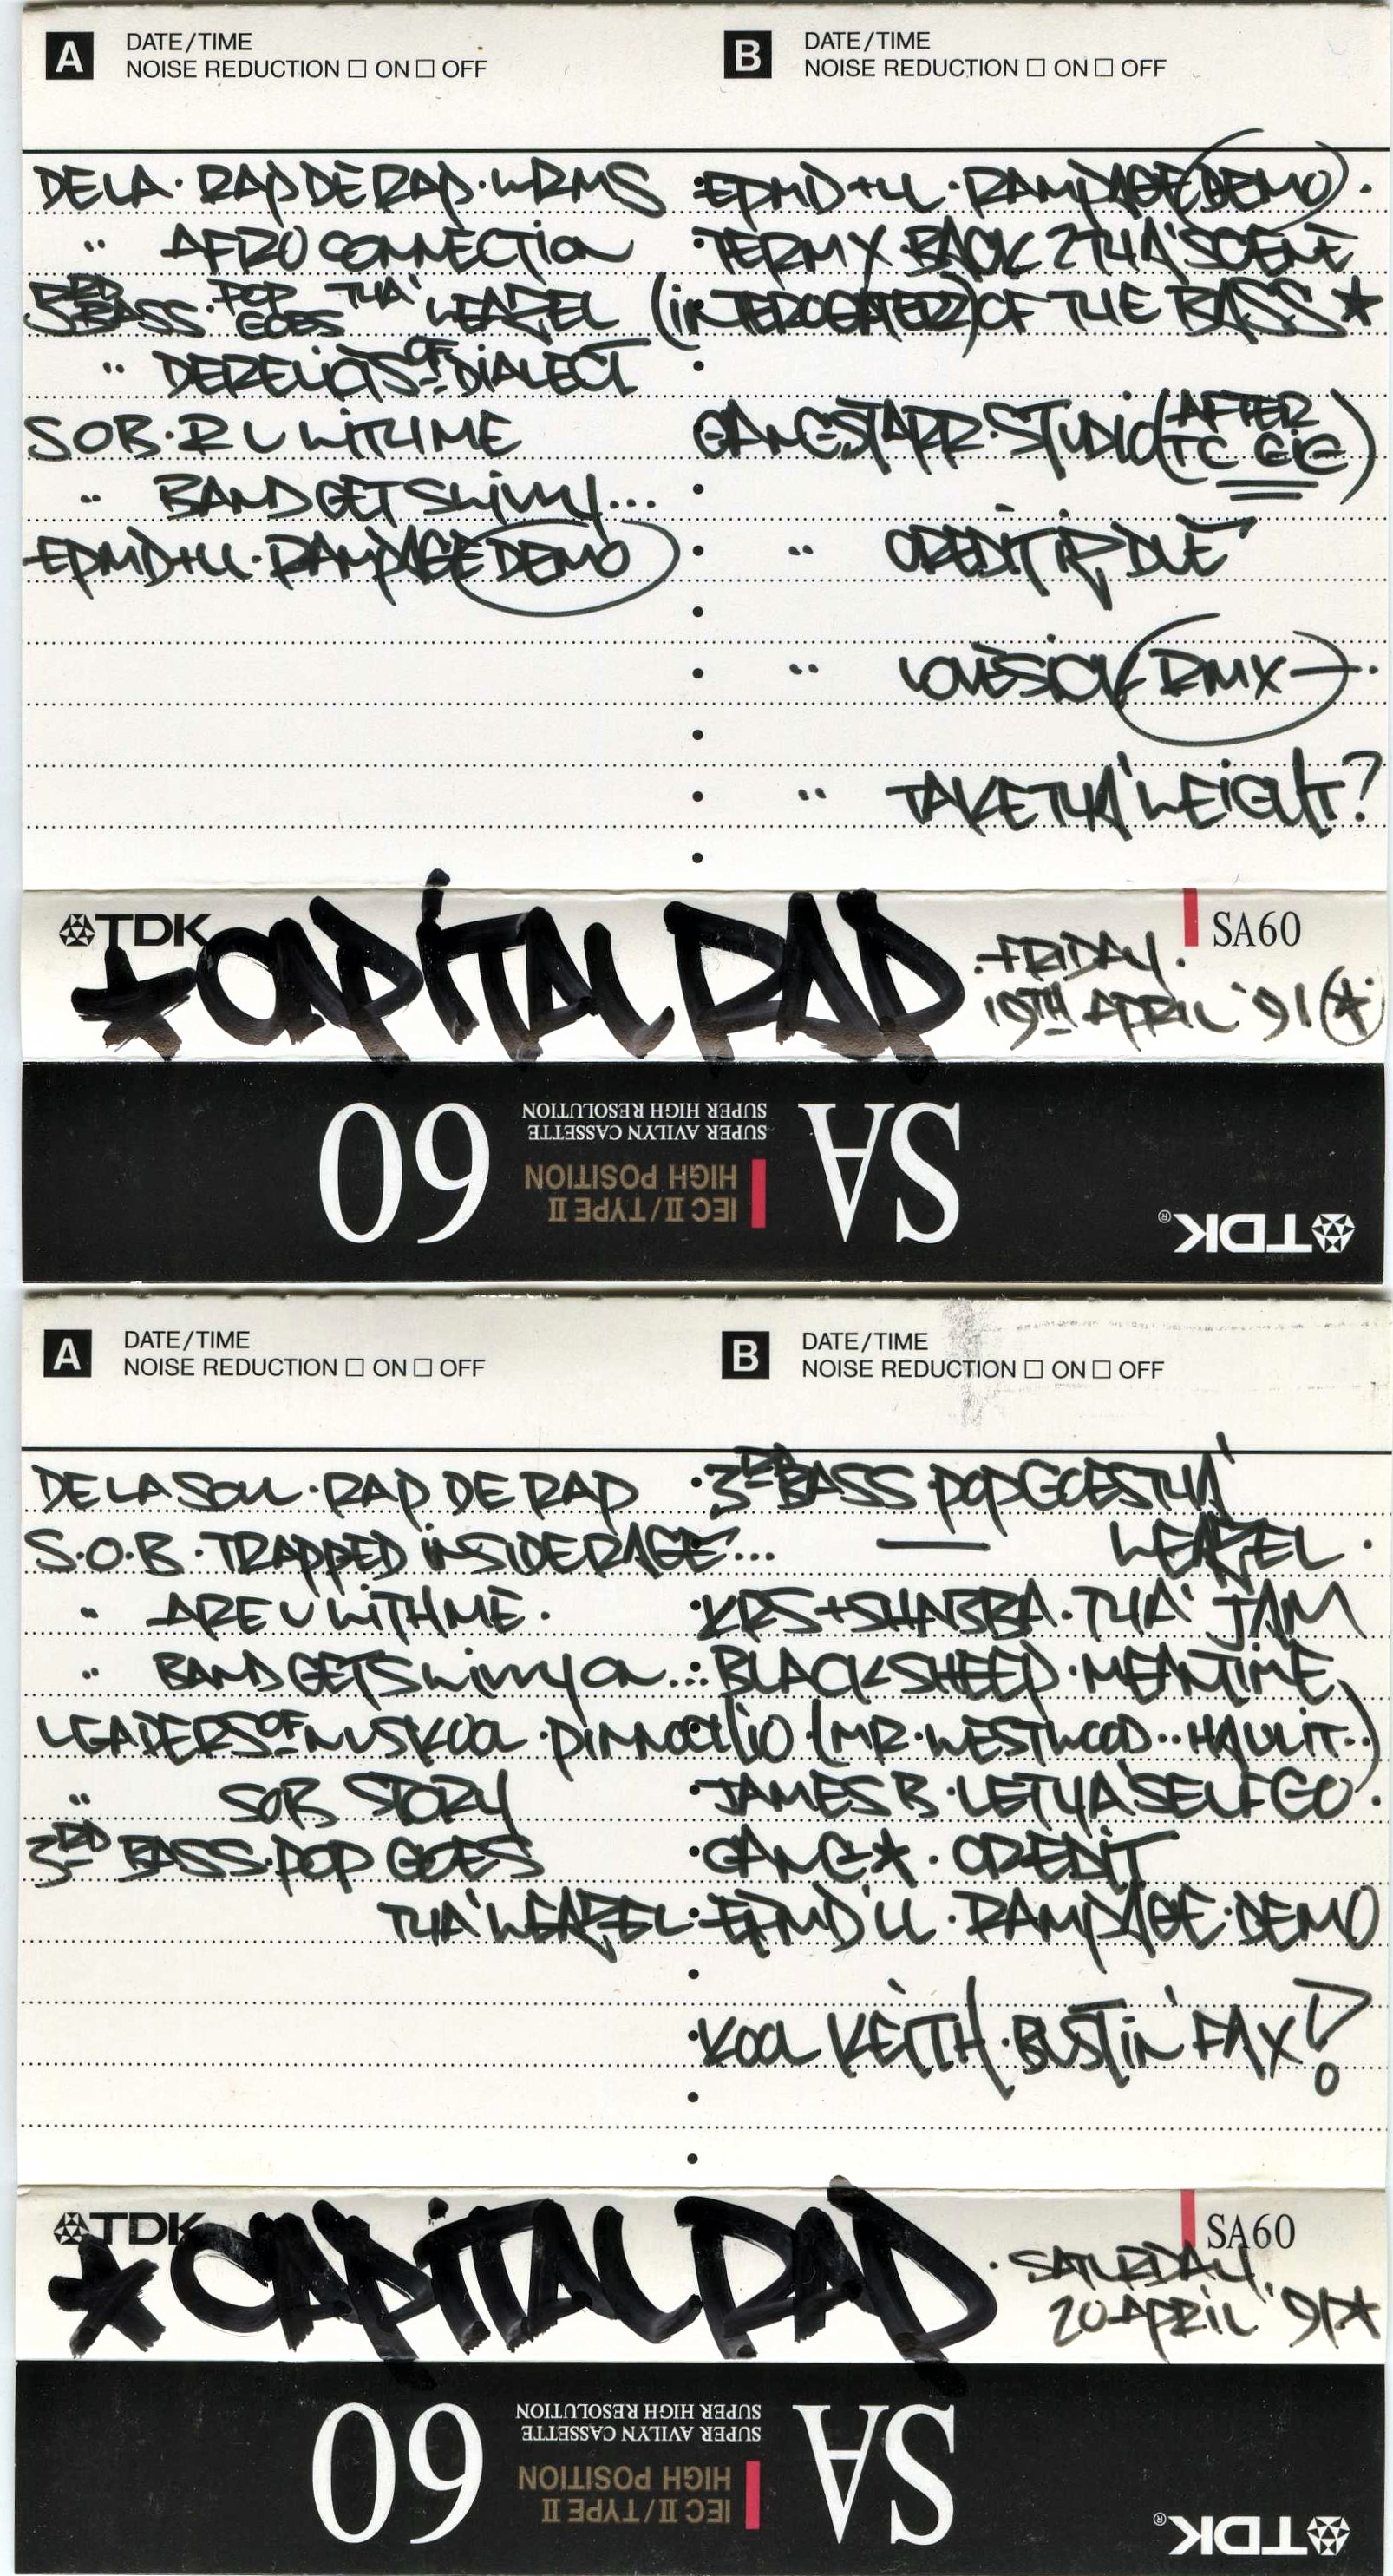 A DATE/TIME
NOISE REDUCTION □ ON □ OFF
B DATE/TIME
NOISE REDUCTION □ ON □ OFF
DE LA · RAP DE RAP · WRMS
" AFRO CONNECTION
3RD BASS · POP GOES THA' WEAZEL
" DERELICTS OF DIALECT
SOB · R U WITH ME
" BAND GETS WIVVY...
EPMD + LL · RAMPAGE (DEMO)
EPMD + LL · RAMPAGE (DEMO) ·
TERM X BACK 2 THA' SCENE
(INTEROGATERZ) OF THE BASS ★
GANGSTARR · STUDIO (AFTER TC GIG)
" CREDIT IZ DUE
" LOVESICK (RMX)
" TAKE THA' WEIGHT?
TDK
★ CAPITAL RAP
· FRIDAY ·
19TH APRIL '91 ★
SA60
SA 60
SUPER AVILYN CASSETTE
SUPER HIGH RESOLUTION
IEC II/TYPE II
HIGH POSITION
TDK®
A DATE/TIME
NOISE REDUCTION □ ON □ OFF
B DATE/TIME
NOISE REDUCTION □ ON □ OFF
DE LA SOUL · RAP DE RAP
S.O.B · TRAPPED INSIDE RAGE...
" ARE U WITH ME ·
" BAND GETS WIVVY ON...
LEADERS OF NU SKOOL · PINNOCHIO (MR · WESTWOOD ·· HAULIT ··)
" SOB STORY
3RD BASS · POP GOES
THA' WEAZEL
· 3RD BASS · POP GOES THA'
WEAZEL ·
· KRS + SHABBA · THA' JAM
· BLACK SHEEP · MEANTIME
· JAMES B · LET YA'SELF GO ·
· GANG ★ · CREDIT
· EPMD 'LL · RAMPAGE · DEMO
· KOOL KEITH · BUSTIN' FAX!
TDK
★ CAPITAL RAP
· SATURDAY ·
20 APRIL '91 ★
SA60
SA 60
SUPER AVILYN CASSETTE
SUPER HIGH RESOLUTION
IEC II/TYPE II
HIGH POSITION
TDK®